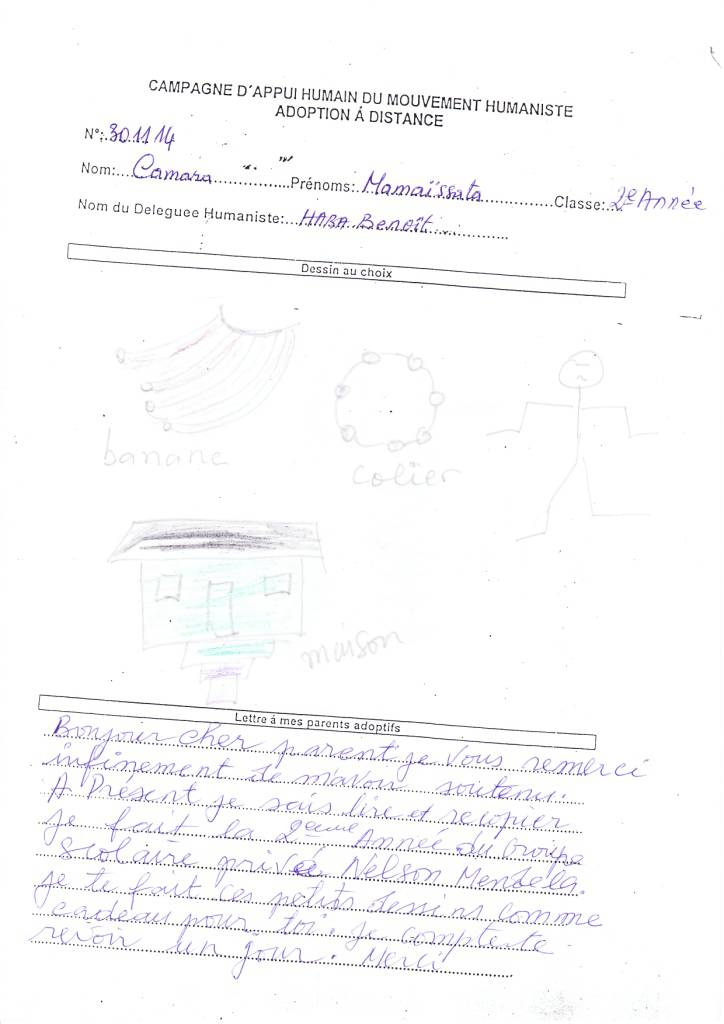 CAMPAGNE D´APPUI HUMAIN DU MOUVEMENT HUMANISTE
ADOPTION Á DISTANCE
N°:.301114
Nom:....Camara.................Prénoms:.Mamaïssata................Classe:.2e Année
Nom du Deleguee Humaniste:..HABA Benoît..............
Dessin au choix
banane
colier
maison
Lettre á mes parents adoptifs
Bonjour cher parent je vous remerci
infinement de m'avoir soutenu.
A Présent je sais lire et recopier
je fait la 2eme Année du Groupe
Scolaire privé Nelson Mendela.
je te fait ces petits dessins comme
cadeau pour toi. je compte te
revoir un jour. Merci